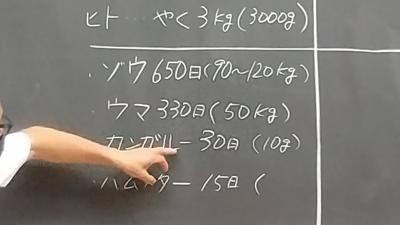 ヒト … やく3kg(3000g)
・ゾウ 650日(90〜120kg)
・ウマ 330日(50kg)
・カンガルー 30日(10g)
・ハムスター 15日(